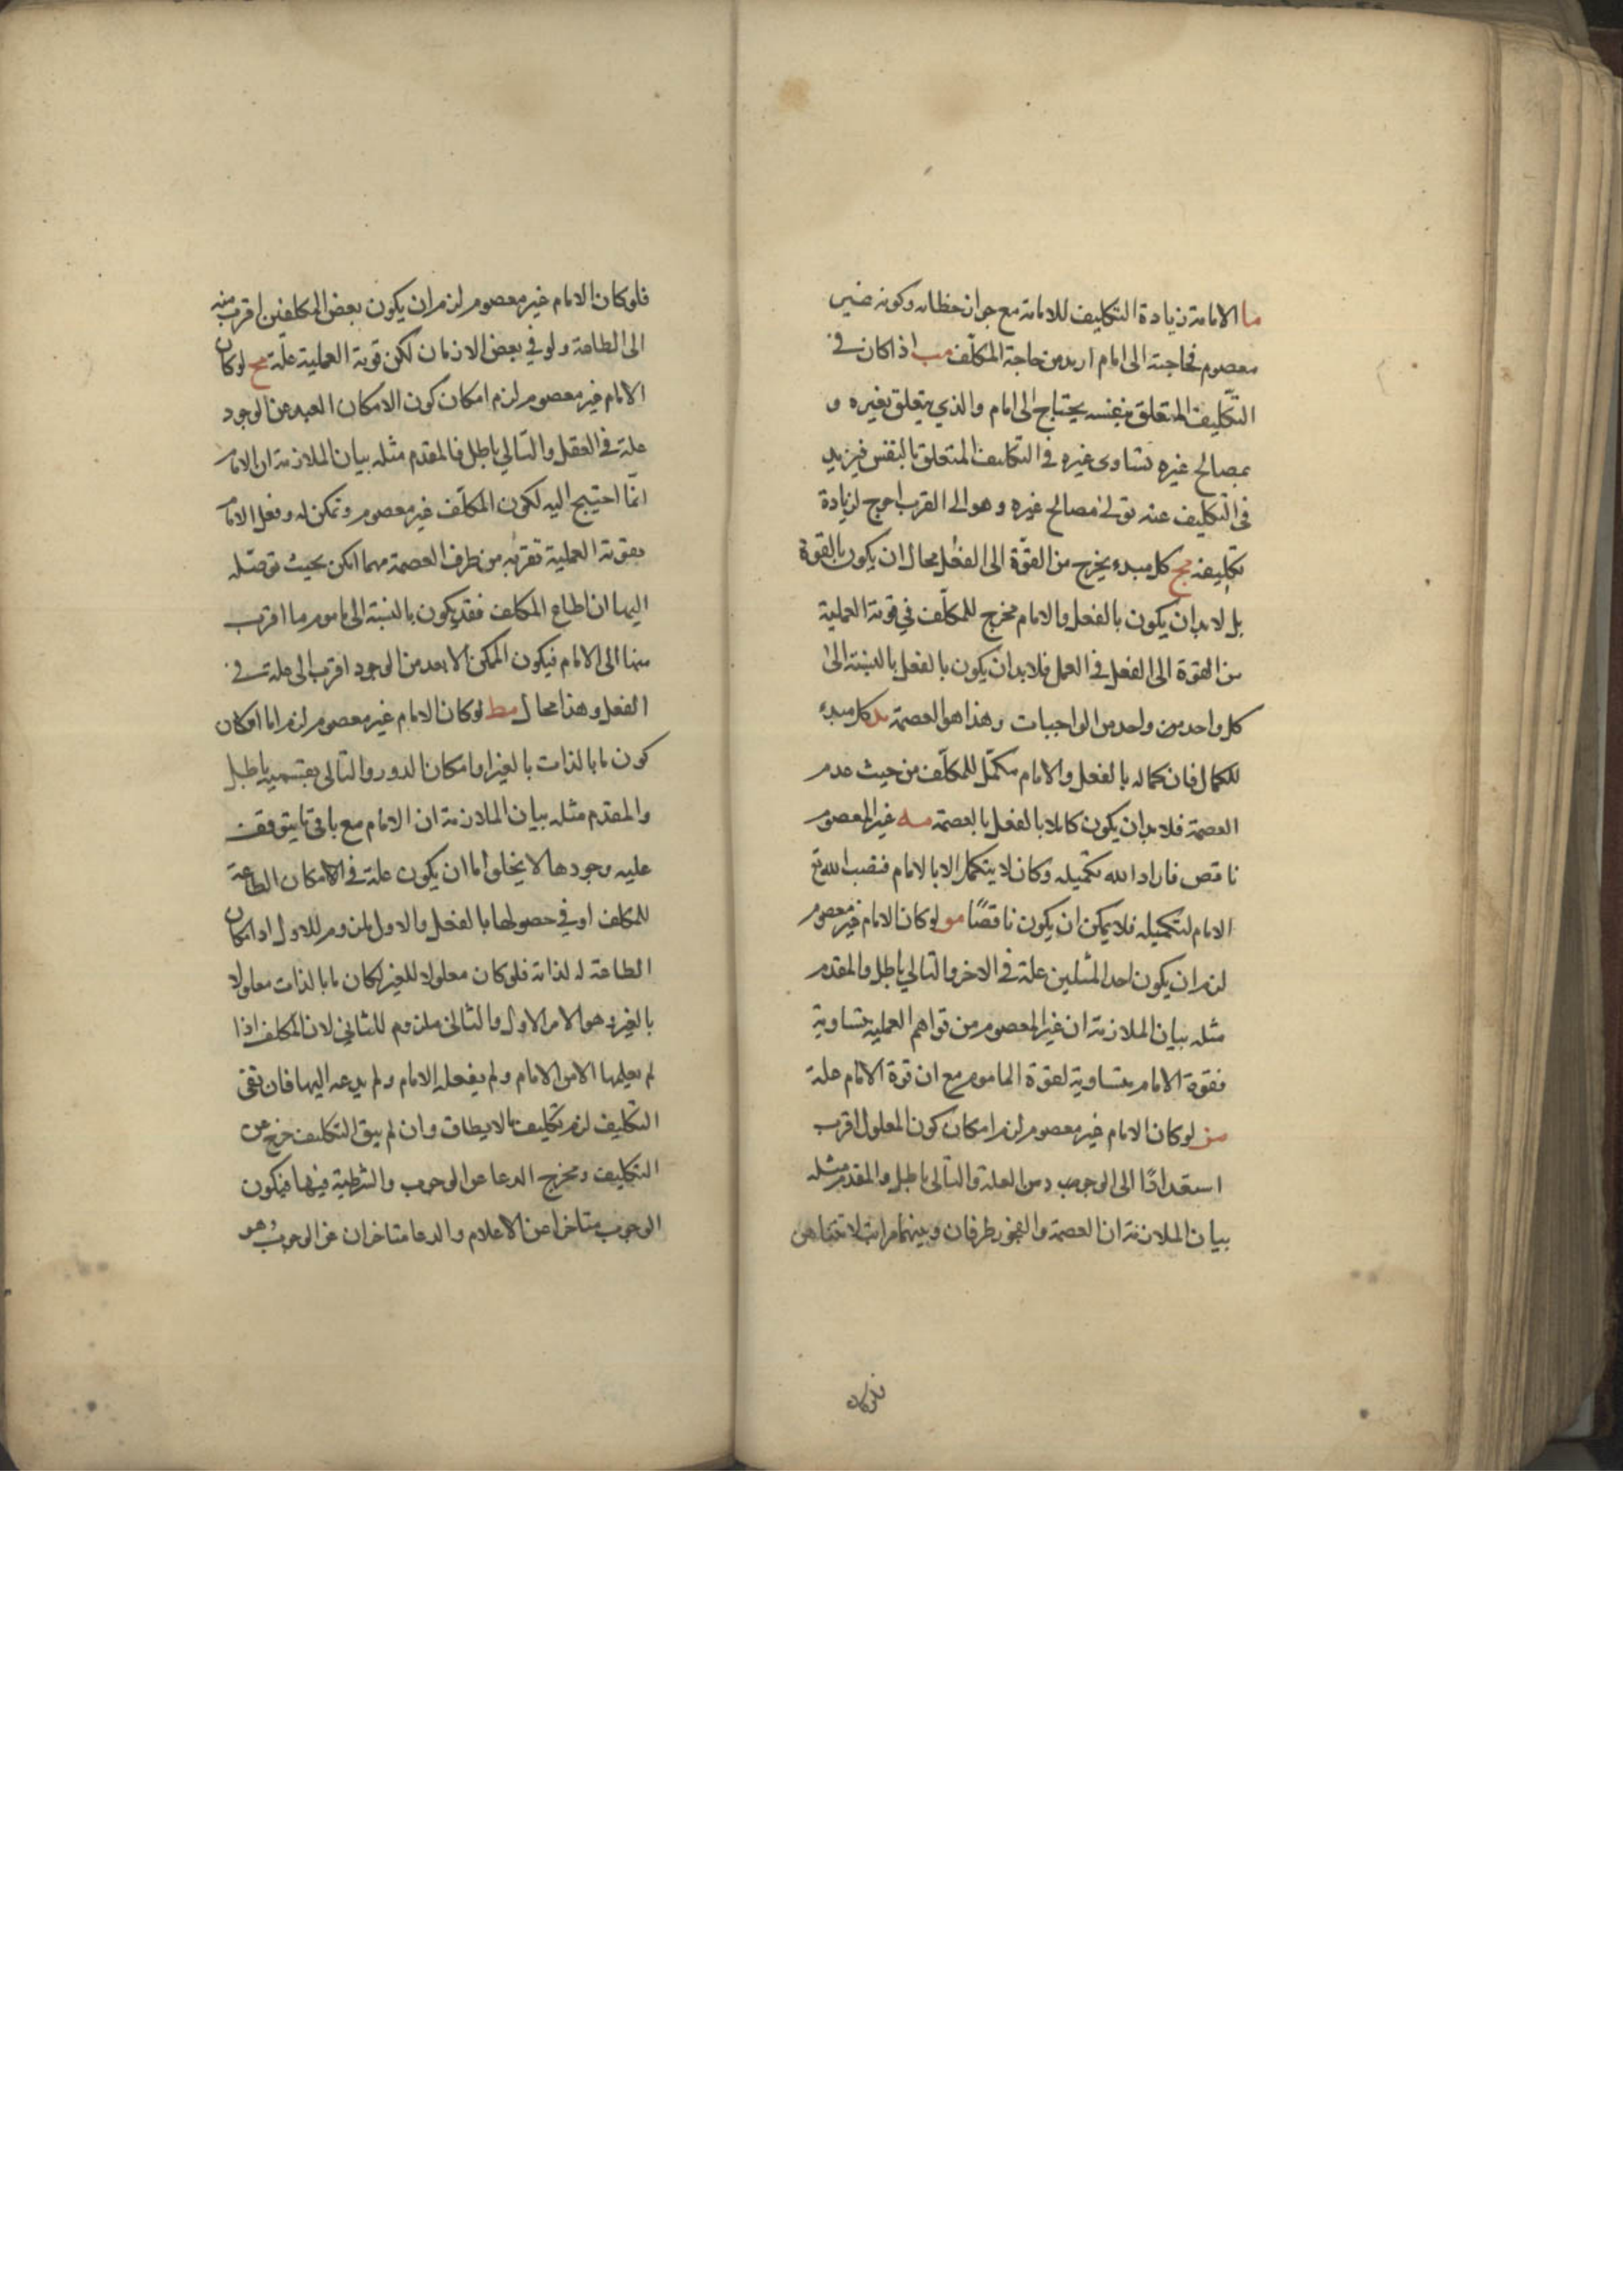 ما الامامة زيادة التكليف للامامة مع جواز خطائه وكونه غير
معصوم فحاجته الى امام ازيد من حاجة المكلّف مب اذا كان في
التكليف المتعلق بنفسه يحتاج الى امام والذي يتعلق بغيره و
بمصالح غيره تساوى غيره في التكليف المتعلق بالنفس فيزيد
في التكليف عنه تولى مصالح غيره وهو الى القرب احوج لزيادة
تكليفه مج كل مبدء يخرج من القوّة الى الفعل محال ان يكون بالقوة
بل لابد ان يكون بالفعل والامام مخرج للمكلّف في قوته العملية
من القوة الى الفعل في العمل فلا بد ان يكون بالفعل بالنسبة الى
كل واحد من واحد من الواجبات وهذا هو العصمة مد كل مبدء
للكمال فان كماله بالفعل والامام مكمّل للمكلّف من حيث عدم
العصمة فلا بد ان يكون كاملا بالفعل بالعصمة مه غير المعصوم
ناقص فاراد الله تكميله وكان لا يتكمل الا بالامام فنصب الله تع
الامام لتكميله فلا يمكن ان يكون ناقصًا مو لو كان الامام غير معصوم
لزم ان يكون احد المثلين علة في الاخر والتالي باطل والمقدم
مثله بيان الملازمة ان غير المعصوم من قواهم العملية متساوية
فقوة الامام متساوية لقوة الماموم مع ان قوة الامام علة
مز لو كان الامام غير معصوم لزم امكان كون المعلول اقرب
استعدادًا الى الوجوب من العلة والتالى باطل والمقدم مثله
بيان الملازمة ان العصمة والفجور طرفان وبينهما مراتب لا تتناهى
فلو كان
فلو كان الامام غير معصوم لزم ان يكون بعض المكلفين اقرب منه
الى الطاعة ولو في بعض الازمان لكن قوته العملية علّة مح لو كان
الامام غير معصوم لزم امكان كون الامكان البعيد من الوجود
علة في العقل والتالي باطل فالمقدم مثله بيان الملازمة ان الامام
انّما احتيج اليه لكون المكلّف غير معصوم وتمكن له وفعل الامام
بقوته العملية تقربه من طرف العصمة مهما امكن بحيث توصّله
اليها ان اطاع المكلف فقد يكون بالنسبة الى ماموم ما اقرب
منها الى الامام فيكون الممكن الابعد من الوجود اقرب الى علة في
الفعل وهذا محال مط لو كان الامام غير معصوم لزم اما امكان
كون ما بالذات بالغير او امكان الدور والتالى بقسميه باطل
والمقدم مثله بيان الملازمة ان الامام مع باقي ما يتوقف
عليه وجودها لا يخلو اما ان يكون علة في الامكان الطاعة
للمكلف او في حصولها بالفعل والاول ملزوم للاول اذ امكان
الطاعة له لذاته فلو كان معلولا للغير لكان ما بالذات معلولا
بالغير وهو الامر الاول والثانى ملزوم للثاني لان المكلف اذا
لم يعلمها الا من الامام ولم يفعله الامام ولم يدعه اليها فان بقى
التكليف لزم تكليف ما لا يطاق وان لم يبق التكليف خرج عن
التكليف ومخرج الدعا عن الوجوب والشرطية فيها فيكون
الوجوب متاخرا عن الاعلام والدعا متاخران عن الوجوب وهو